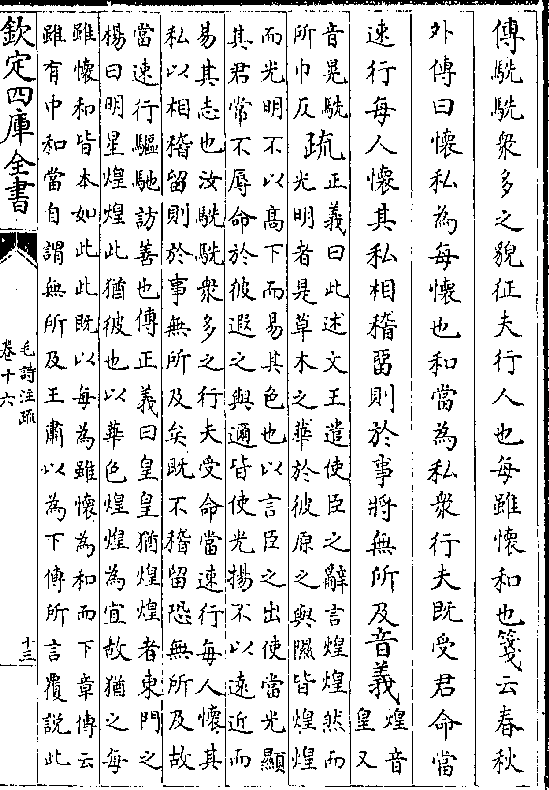 傳駪駪衆多之貌征夫行人也每雖懷和也箋云春秋
外傳曰懷私為每懷也和當為私衆行夫既受君命當
速行每人懷其私相稽留則於事將無所及音義
煌音
皇又
音晃駪
所巾反
疏
正義曰此述文王遣使臣之辭言煌煌然而
光明者是草木之華於彼原之與隰皆煌煌
而光明不以高下而易其色也以言臣之出使當光顯
其君常不辱命於彼遐之與邇皆使光揚不以遠近而
易其志也汝駪駪衆多之行夫受命當速行每人懷其
私以相稽留則於事無所及矣既不稽留恐無所及故
當速行驅馳訪善也傳正義曰皇皇猶煌煌者東門之
楊曰明星煌煌此猶彼也以華色煌煌為宜故猶之每
雖懷和皆本如此此既以每為雖懷為和而下章傳云
雖有中和當自謂無所及王肅以為下傳所言覆說此
欽定四庫全書
毛詩注疏
卷十六
十三